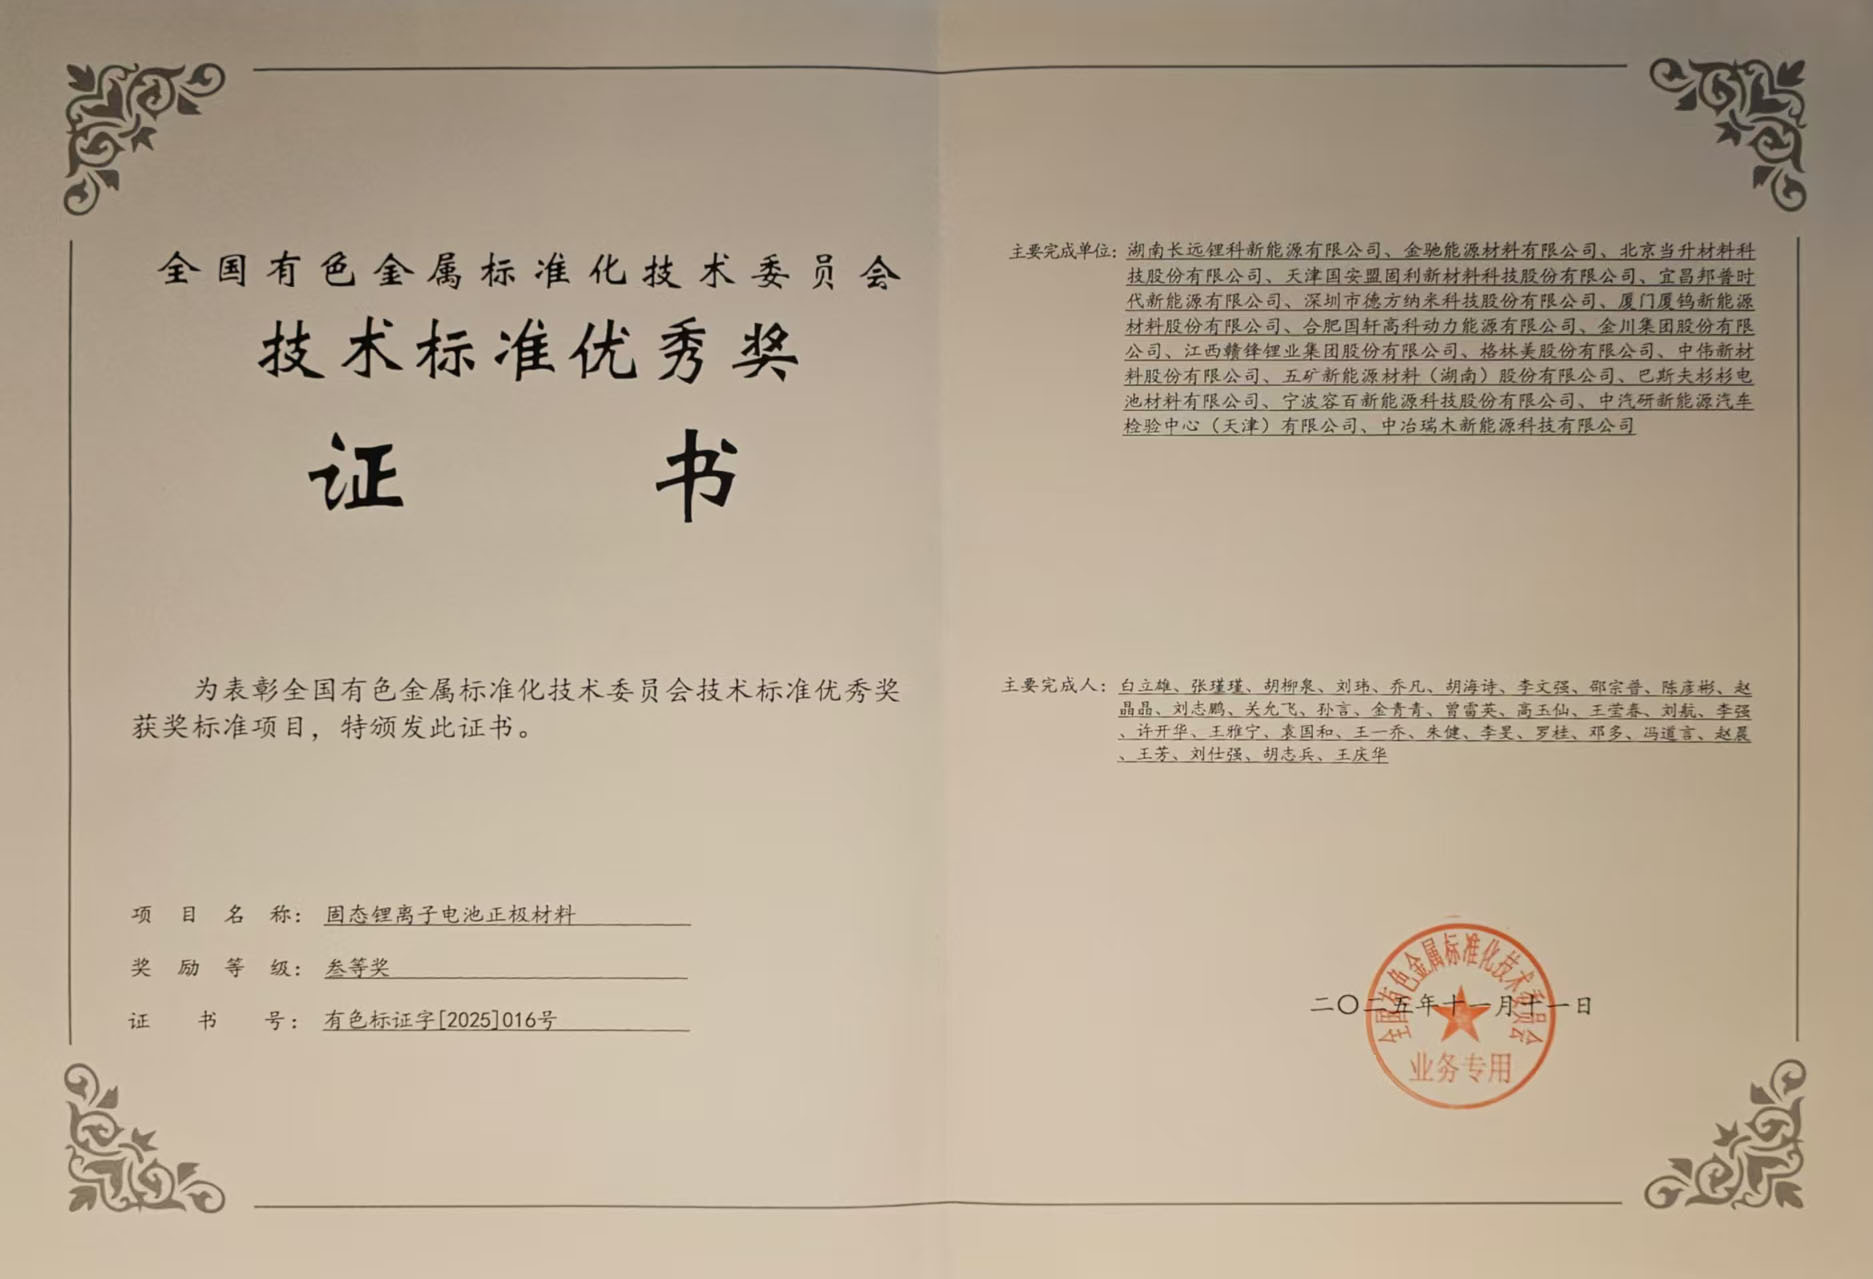 全国有色金属标准化技术委员会
技术标准优秀奖
证 书
为表彰全国有色金属标准化技术委员会技术标准优秀奖
获奖标准项目，特颁发此证书。
项目名称：固态锂离子电池正极材料
奖励等级：叁等奖
证书号：有色标证字[2025]016号
主要完成单位：湖南长远锂科新能源有限公司、金驰能源材料有限公司、北京当升材料科
技股份有限公司、天津国安盟固利新材料科技股份有限公司、宜昌邦普时
代新能源有限公司、深圳市德方纳米科技股份有限公司、厦门厦钨新能源
材料股份有限公司、合肥国轩高科动力能源有限公司、金川集团股份有限
公司、江西赣锋锂业集团股份有限公司、格林美股份有限公司、中伟新材
料股份有限公司、五矿新能源材料（湖南）股份有限公司、巴斯夫杉杉电
池材料有限公司、宁波容百新能源科技股份有限公司、中汽研新能源汽车
检验中心（天津）有限公司、中冶瑞木新能源科技有限公司
主要完成人：白立雄、张瑾瑾、胡柳泉、刘玮、乔凡、胡海诗、李文强、邵宗普、陈彦彬、赵
晶晶、刘志鹏、关允飞、孙言、金青青、曾雷英、高玉仙、王莹春、刘航、李强
、许开华、王雅宁、袁国和、王一乔、朱健、李旻、罗桂、邓多、冯道言、赵晨
、王芳、刘仕强、胡志兵、王庆华
二〇二五年十一月十一日
全国有色金属标准化技术委员会
业务专用